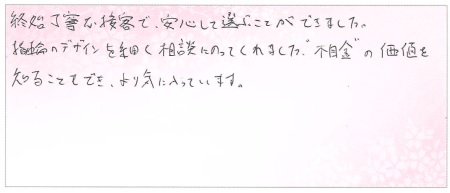 終始丁寧な接客で、安心して選ぶことができました。
指輪のデザインを細く相談にのってくれました。"杢目金"の価値を
知ることもでき、より気に入っています。